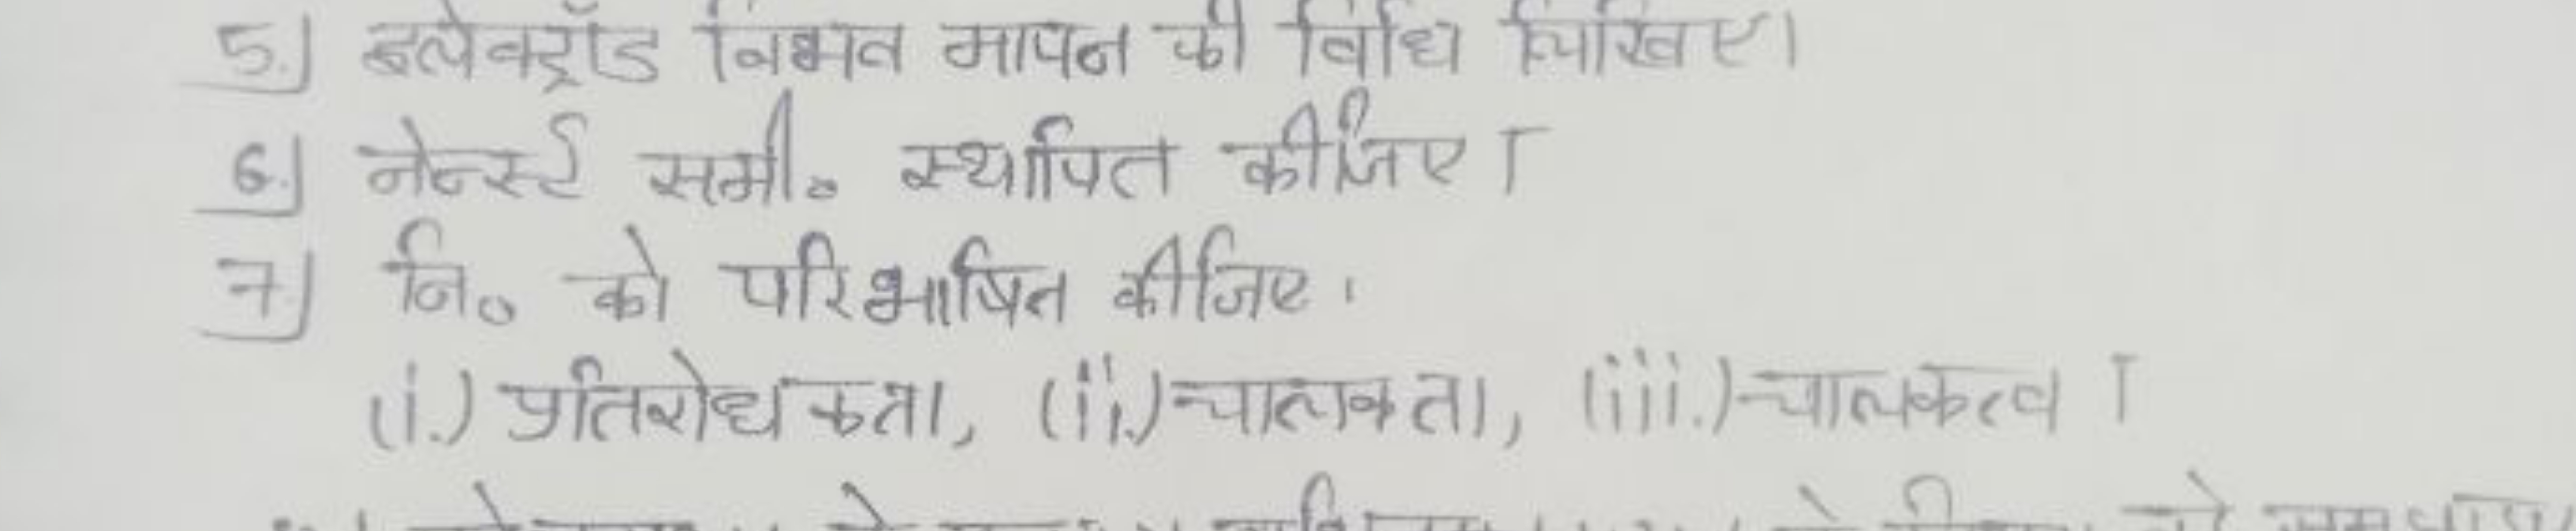 5.) इलेक्ट्रॉड विभव मापन की विधि लिखिए।
6.) नेर्न्स्ट समी॰ स्थापित कीजिए।
7.) नि॰ को परिभाषित कीजिए।
(i.) प्रतिरोधकता, (ii.) चालकता, (iii.) चालकत्व।